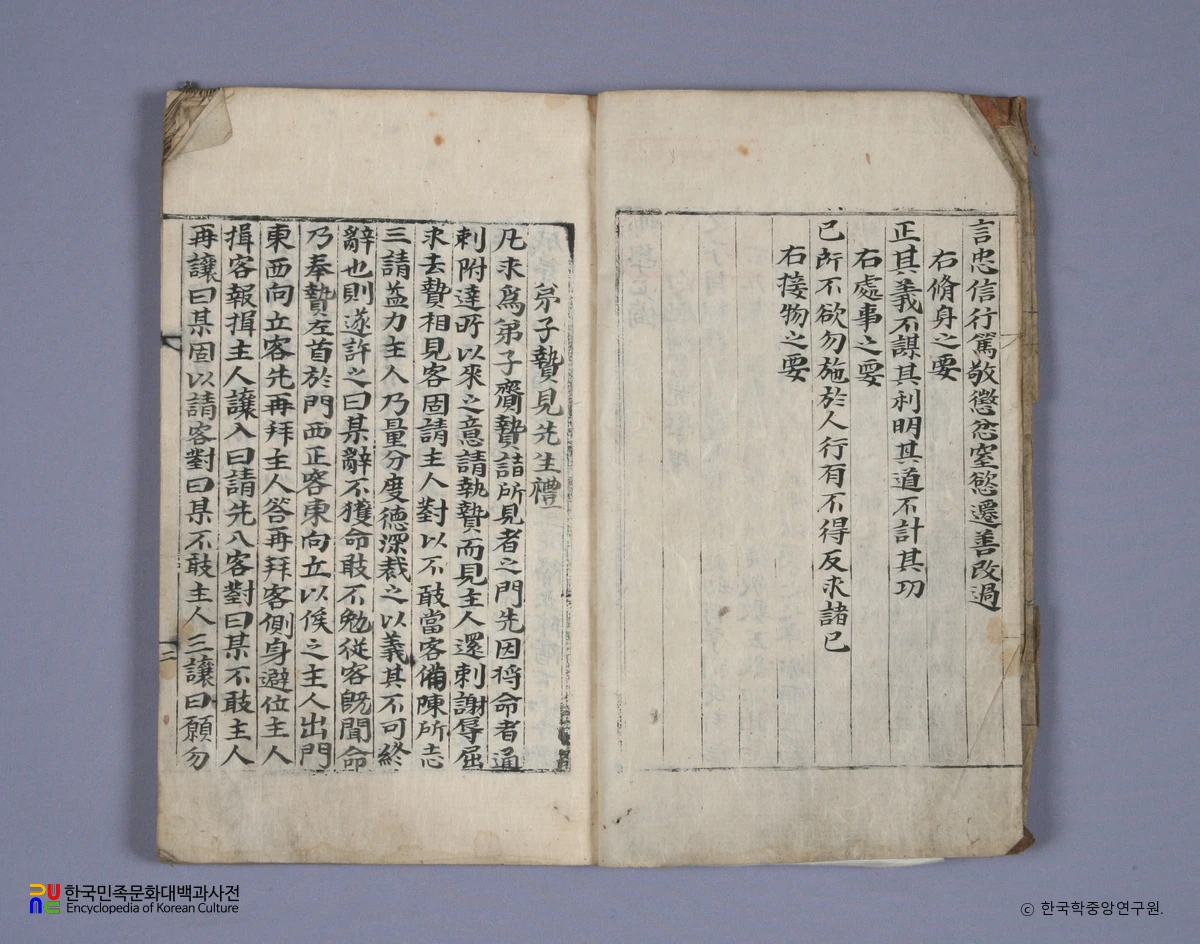 言忠信行篤敬懲忿窒慾遷善改過
右脩身之要
正其義不謀其利明其道不計其功
右處事之要
己所不欲勿施於人行有不得反求諸己
右接物之要
弟子贄見先生禮
凡求爲弟子齎贄詣所見者之門先因將命者通
刺附達所以來之意請執贄而見主人還刺謝辱屈
求去贄相見客固請主人對以不敢當客備陳所志
三請益力主人乃量分度德深裁之以義其不可終
辭也則遂許之曰某辭不獲命敢不勉從客旣聞命
乃奉贄左首於門西正客東向立以俟之主人出門
東西向立客先再拜主人答再拜客側身避位主人
揖客報揖主人讓入曰請先入客對曰某不敢主人
再讓曰某固以請客對曰某不敢主人三讓曰願勿
二
한국민족문화대백과사전
Encyclopedia of Korean Culture
ⓒ 한국학중앙연구원.